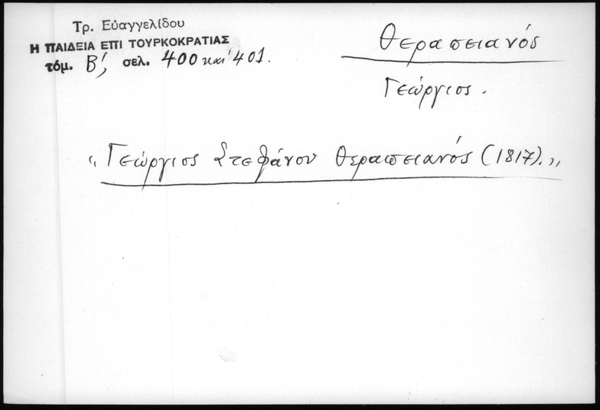 Τρ. Εὐαγγελίδου
Η ΠΑΙΔΕΙΑ ΕΠΙ ΤΟΥΡΚΟΚΡΑΤΙΑΣ
τόμ. Β', σελ. 400 καὶ 401.
Θεραπειανός
Γεώργιος.
"Γεώργιος Στεφάνου Θεραπειανός (1817)."